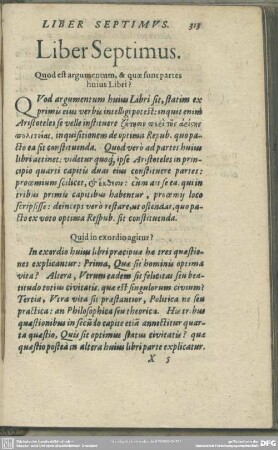 LIBER SEPTIMVS. 313
Liber Septimus.
Quod est argumentum, & quæ sunt partes
huius Libri?
QVod argumentum huius Libri sit, statim ex
primis eius verbis intelligi potest: inquit enim
Aristoteles se velle instituere ζήτησιν περὶ τῆς ἀρίστης
πολιτείας, inquisitionem de optima Repub. quo pa-
cto ea sit constituenda. Quod verò ad partes huius
libri attinet: videtur quodq́, ipse Aristoteles in prin-
cipio quarti capitis duas eius constituere partes:
proœmium scilicet, & cùm ait se ea. qui in
tribus primis capitibus habentur, proœmij loco
scripsisse: deinceps verò restare, vt ostendat, quo pa-
cto ex voto optima Respub. sit constituenda.
Quid in exordio agitur?
In exordio huius libri præcipuæ ha tres quæstio-
nes explicantur: Prima, Quæ sit hominis optima
vita? Altera, Verum eadem sit felicitas seu bea-
titudo totius ciuitatis, quæ est singulorum ciuium?
Tertia, Vtra vita sit præstantior, Politica ne seu
practica: an Philosophica seu theorica. His tribus
quæstionibus in secūdo capite etiā annectitur quar-
ta quæstio, Quis sit optimus status ciuitatis? quæ
quæstio postea in altera huius libri parte explicatur.
X 5